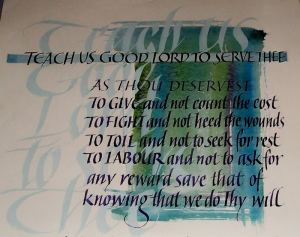 Teach us
Good
Lord
to Serve
Thee
TEACH US GOOD LORD TO SERVE THEE
AS THOU DESERVEST
TO GIVE and not count the cost
TO FIGHT and not heed the wounds
TO TOIL and not to seek for rest
TO LABOUR and not to ask for
any reward save that of
knowing that we do thy will